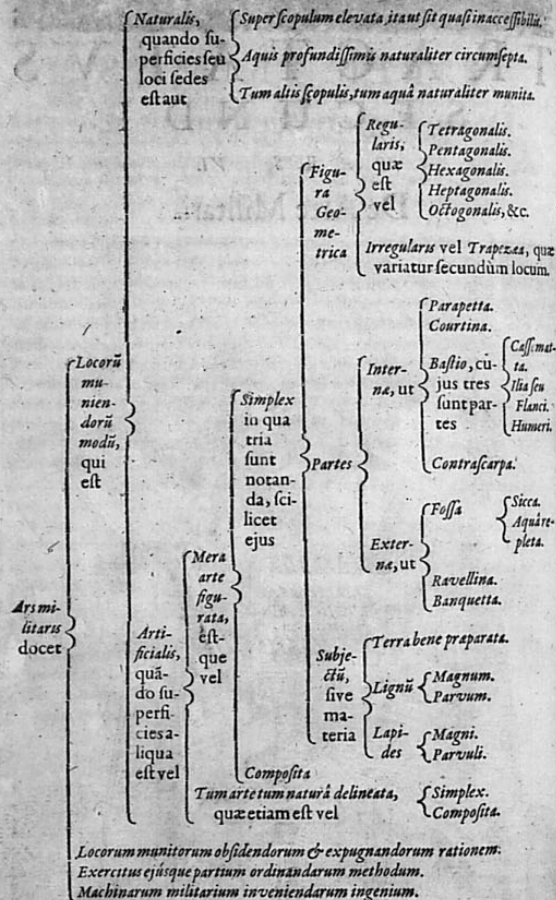 Naturalis,
quando su-
perficies seu
loci sedes
est aut
Super scopulum elevata, ita ut sit quasi inaccessibilis.
Aquis profundissimis naturaliter circumsepta.
Tum altis scopulis, tum aquâ naturaliter munita.
Ars mi-
litaris
docet
Locorũ
mu-
nien-
dorũ
modũ,
qui
est
Arti-
ficialis,
quã-
do su-
perfi-
cies a-
liqua
est vel
Mera
arte
figu-
rata,
ést-
que
vel
Simplex
in qua
tria
sunt
notan-
da, sci-
licet
ejus
Figu-
ra
Geo-
me-
trica
Regu-
laris,
quæ
est
vel
Tetragonalis.
Pentagonalis.
Hexagonalis.
Heptagonalis.
Octogonalis, &c.
Irregularis vel Trapezæa, quæ
variatur secundùm locum.
Partes
Inter-
næ, ut
Parapetta.
Courtina.
Bastio, cu-
jus tres
sunt par-
tes
Cassemat-
ta.
Ilia seu
Flanci.
Humeri.
Contrascarpa.
Exter-
næ, ut
Fossa
Sicca.
Aquâ re-
pleta.
Ravellina.
Banquetta.
Subje-
ctũ,
sive
ma-
teria
Terra bene præparata.
Lignũ
Magnum.
Parvum.
Lapi-
des
Magni.
Parvuli.
Composita
Tum arte tum naturâ delineata,
quæ etiam est vel
Simplex.
Composita.
Locorum munitorum obsidendorum & expugnandorum rationem.
Exercitus ejúsque partium ordinandarum methodum.
Machinarum militarium inveniendarum ingenium.